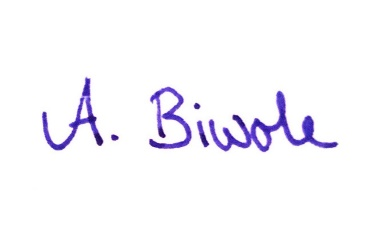 A. Biwole